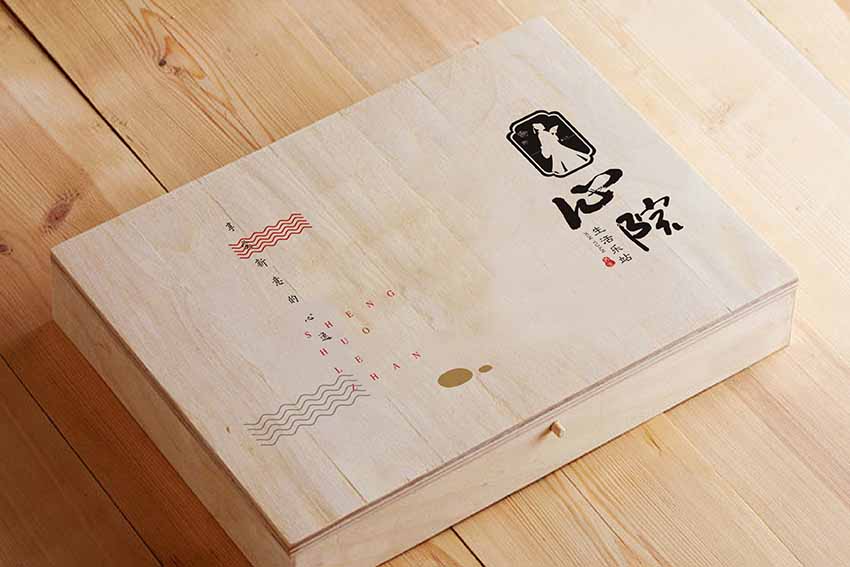 心院
生活乐站
享受新意的心适
SHENG
HUO
LE
ZHAN